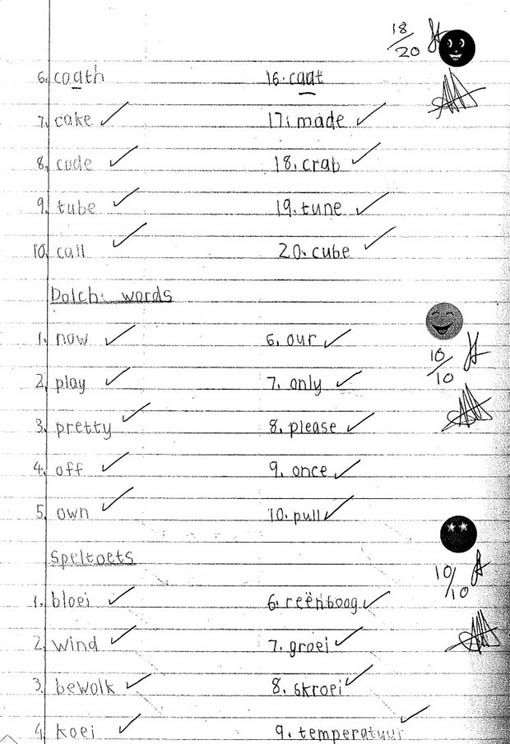 18/20
6. coath 16. caat
7. cake 17. made
8. cude 18. crab
9. tube 19. tune
10. call 20. cube
Dolch: words
10/10
1. now 6. our
2. play 7. only
3. pretty 8. please
4. off 9. once
5. own 10. pull
Speltoets
10/10
1. bloei 6. reënboog
2. wind 7. groei
3. bewolk 8. skroei
4. koei 9. temperatuur